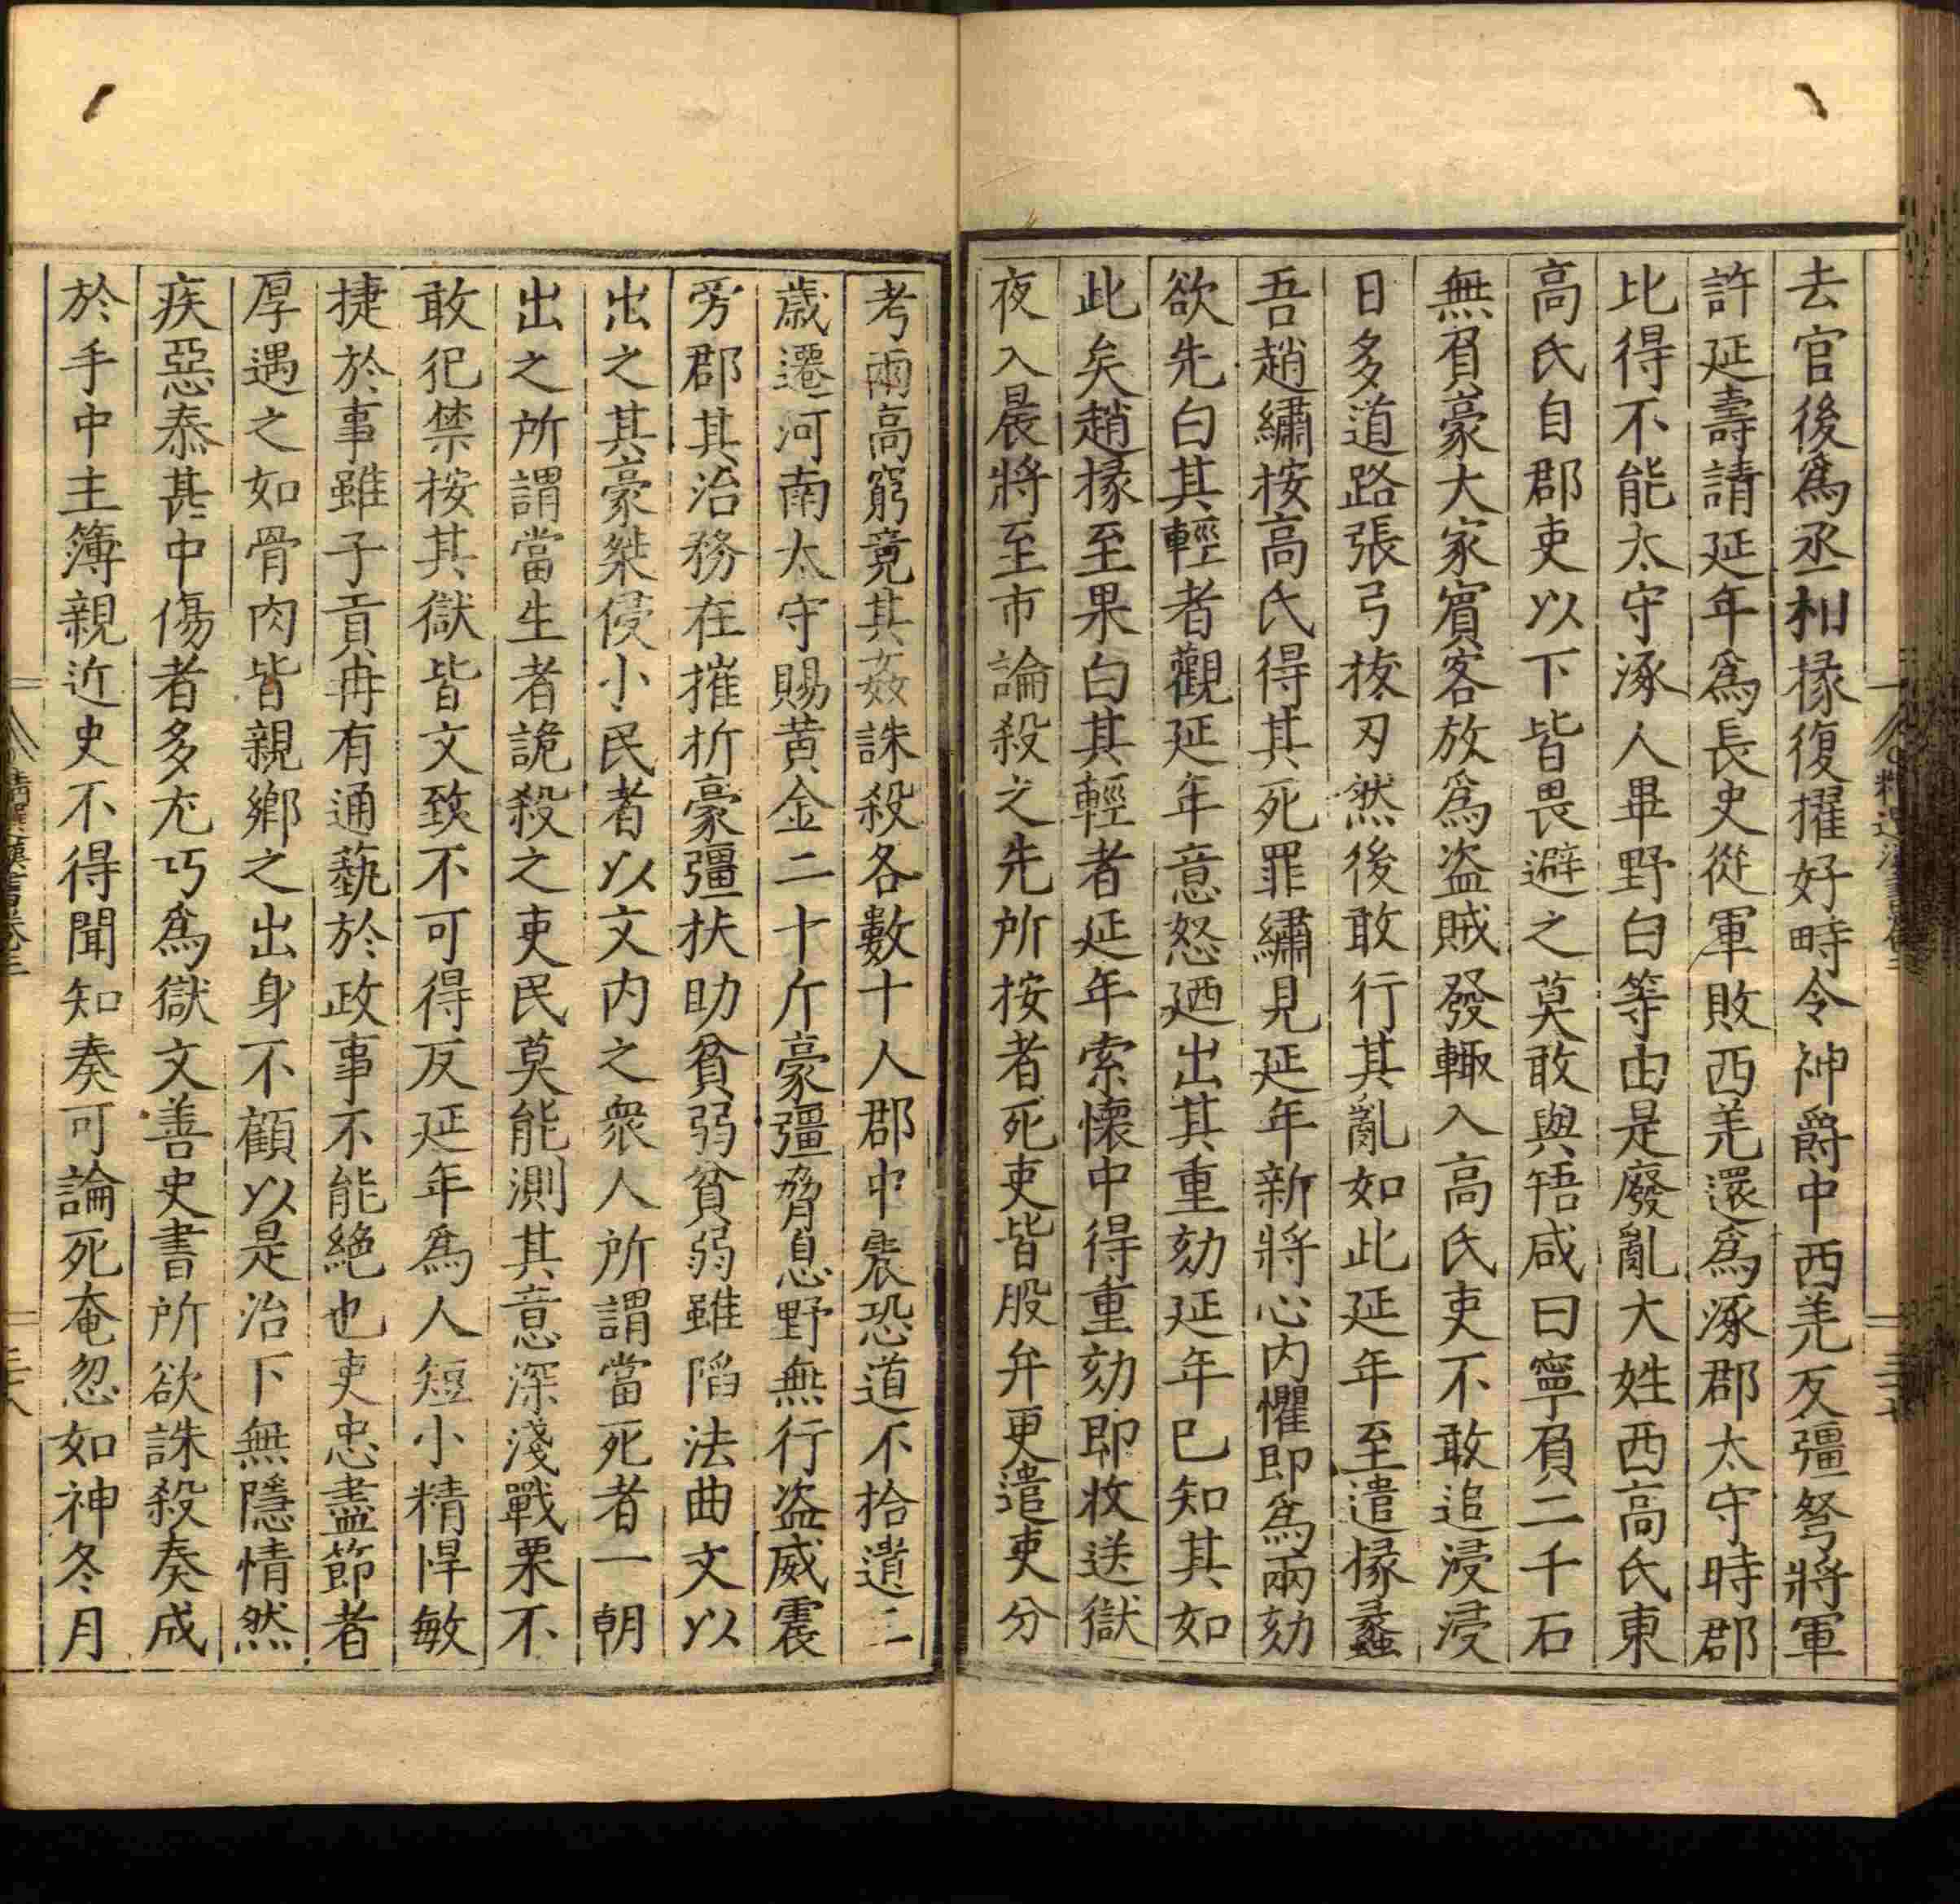 去官後爲丞相掾復擢好畤令神爵中西羌反彊弩將軍
許延壽請延年爲長史從軍敗西羌還爲涿郡太守時郡
比得不能太守涿人畢野白等由是廢亂大姓西高氏東
高氏自郡吏以下皆畏避之莫敢與啎咸曰寧負二千石
無負豪大家賓客放爲盜賊發輒入高氏吏不敢追浸浸
日多道路張弓拔刃然後敢行其亂如此延年至遣掾蠡
吾趙繡按高氏得其死罪繡見延年新將心內懼即爲兩劾
欲先白其輕者觀延年意怒廼出其重劾延年已知其如
此矣趙掾至果白其輕者延年索懷中得重劾即收送獄
夜入晨將至市論殺之先所按者死吏皆股弁更遣吏分
考兩高窮竟其姦誅殺各數十人郡中震恐道不拾遺三
歲遷河南太守賜黃金二十斤豪彊脅息野無行盜威震
旁郡其治務在摧折豪彊扶助貧弱貧弱雖陷法曲文以
出之其豪桀侵小民者以文內之衆人所謂當死者一朝
出之所謂當生者詭殺之吏民莫能測其意深淺戰栗不
敢犯禁按其獄皆文致不可得反延年爲人短小精悍敏
捷於事雖子貢冉有通藝於政事不能絕也吏忠盡節者
厚遇之如骨肉皆親鄉之出身不顧以是治下無隱情然
疾惡泰甚中傷者多尤巧爲獄文善史書所欲誅殺奏成
於手中主簿親近史不得聞知奏可論死奄忽如神冬月
精選漢書卷三